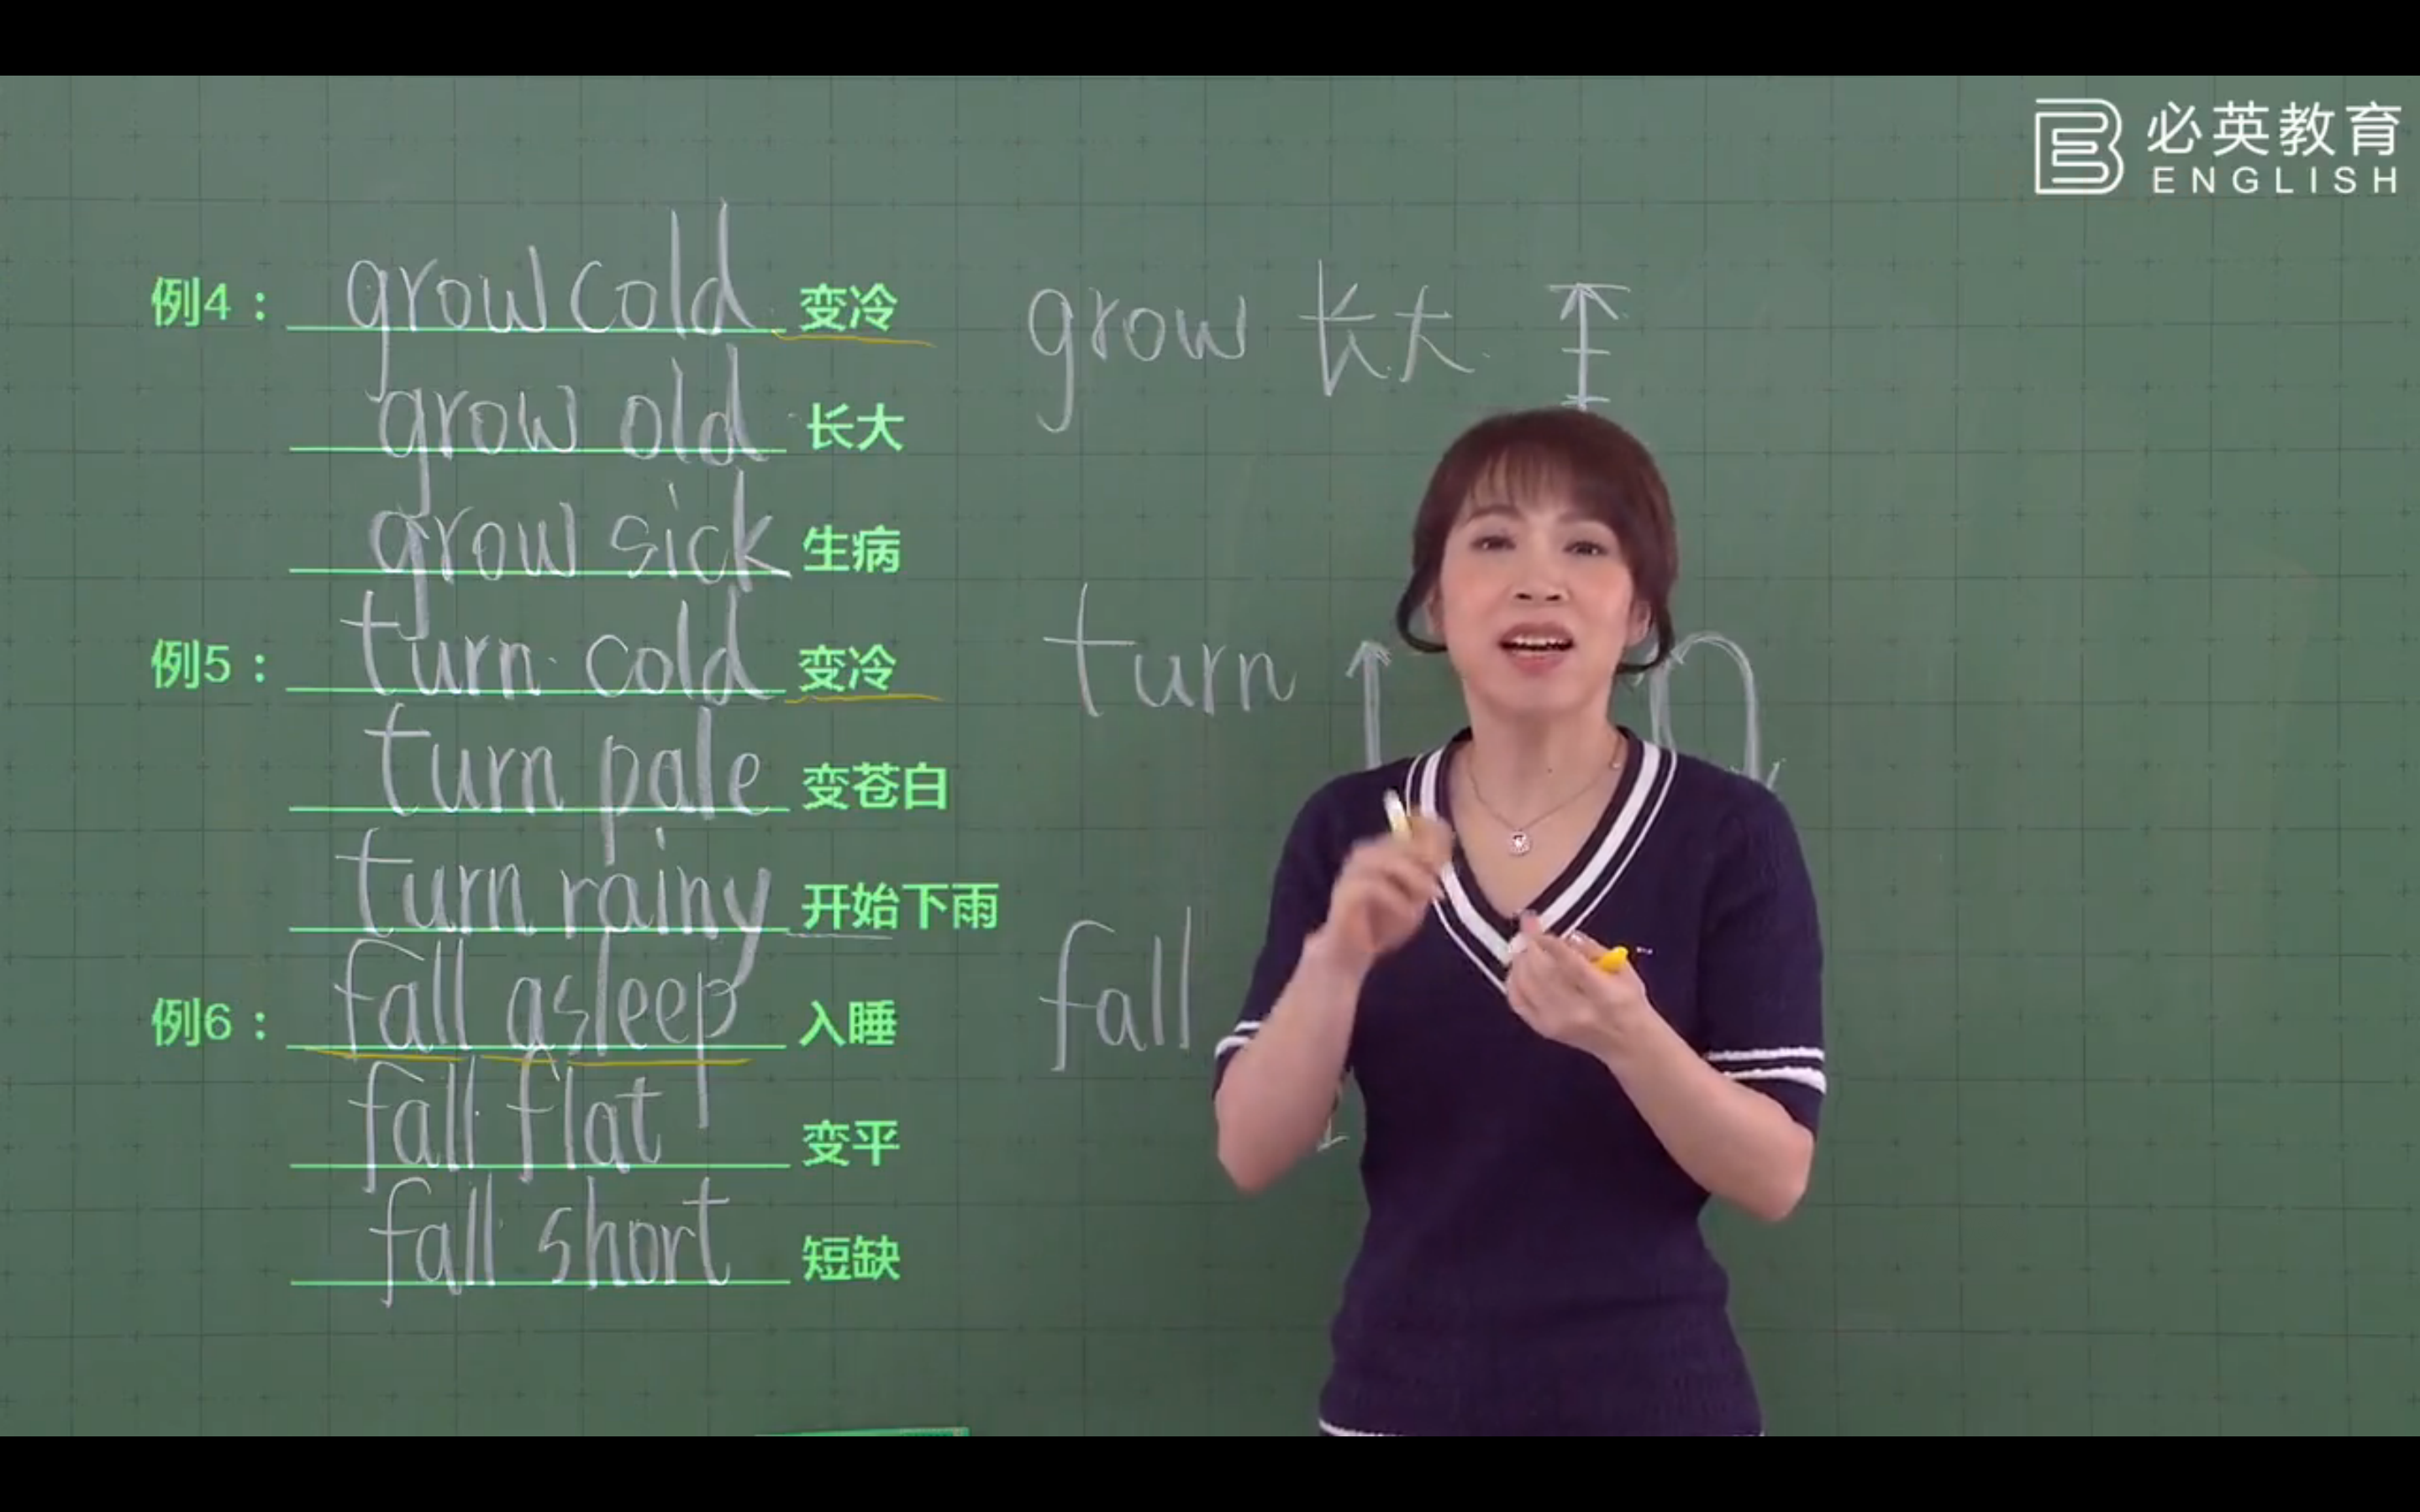 必英教育
ENGLISH
例4： grow cold 变冷
grow old 长大
grow sick 生病
例5： turn cold 变冷
turn pale 变苍白
turn rainy 开始下雨
例6： fall asleep 入睡
fall flat 变平
fall short 短缺
grow 长大
turn
fall